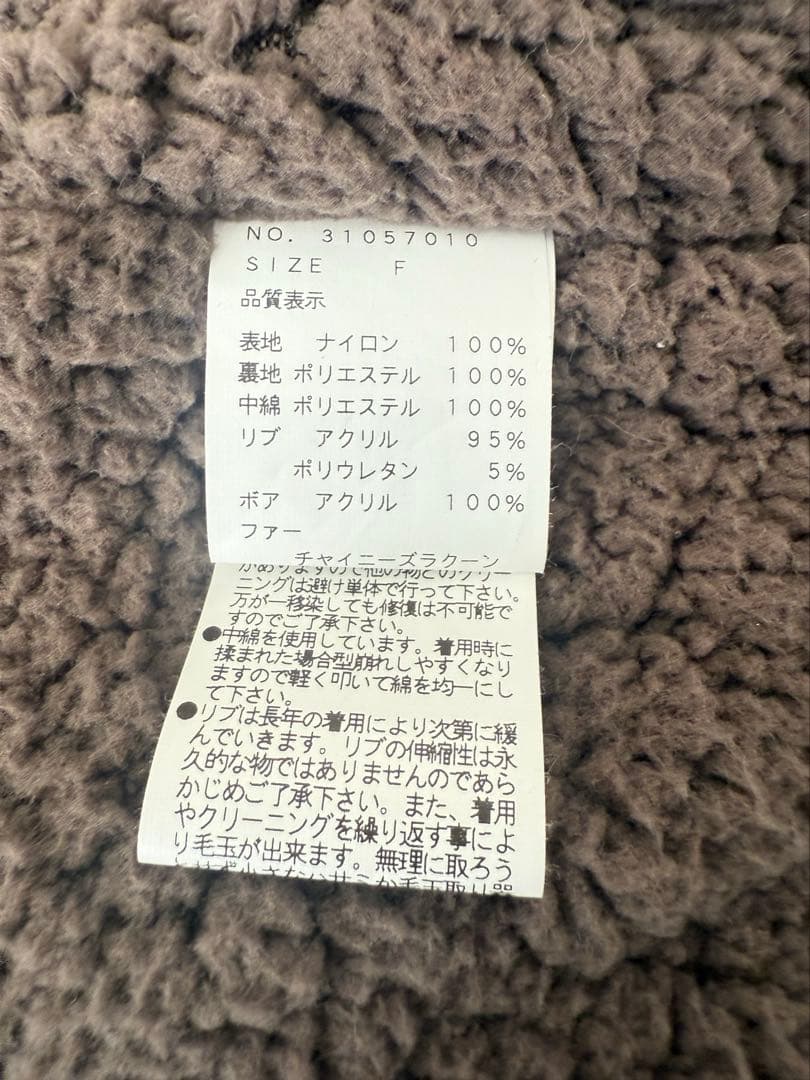 NO. 31057010
SIZE F
品質表示
表地 ナイロン 100%
裏地 ポリエステル 100%
中綿 ポリエステル 100%
リブ アクリル 95%
ポリウレタン 5%
ボア アクリル 100%
ファー
チャイニーズラクーン
がありますので他の物とのクリー
ニングは避け単体で行って下さい。
万が一移染しても修復は不可能で
すのでご了承下さい。
●中綿を使用しています。着用時に
揉まれた場合型崩れしやすくなり
ますので軽く叩いて綿を均一にし
て下さい。
●リブは長年の着用により次第に緩
んでいきます。リブの伸縮性は永
久的な物ではありませんのであら
かじめご了承下さい。また、着用
やクリーニングを繰り返す事によ
り毛玉が出来ます。無理に取ろう
とせず小さなハサミか毛玉取り器